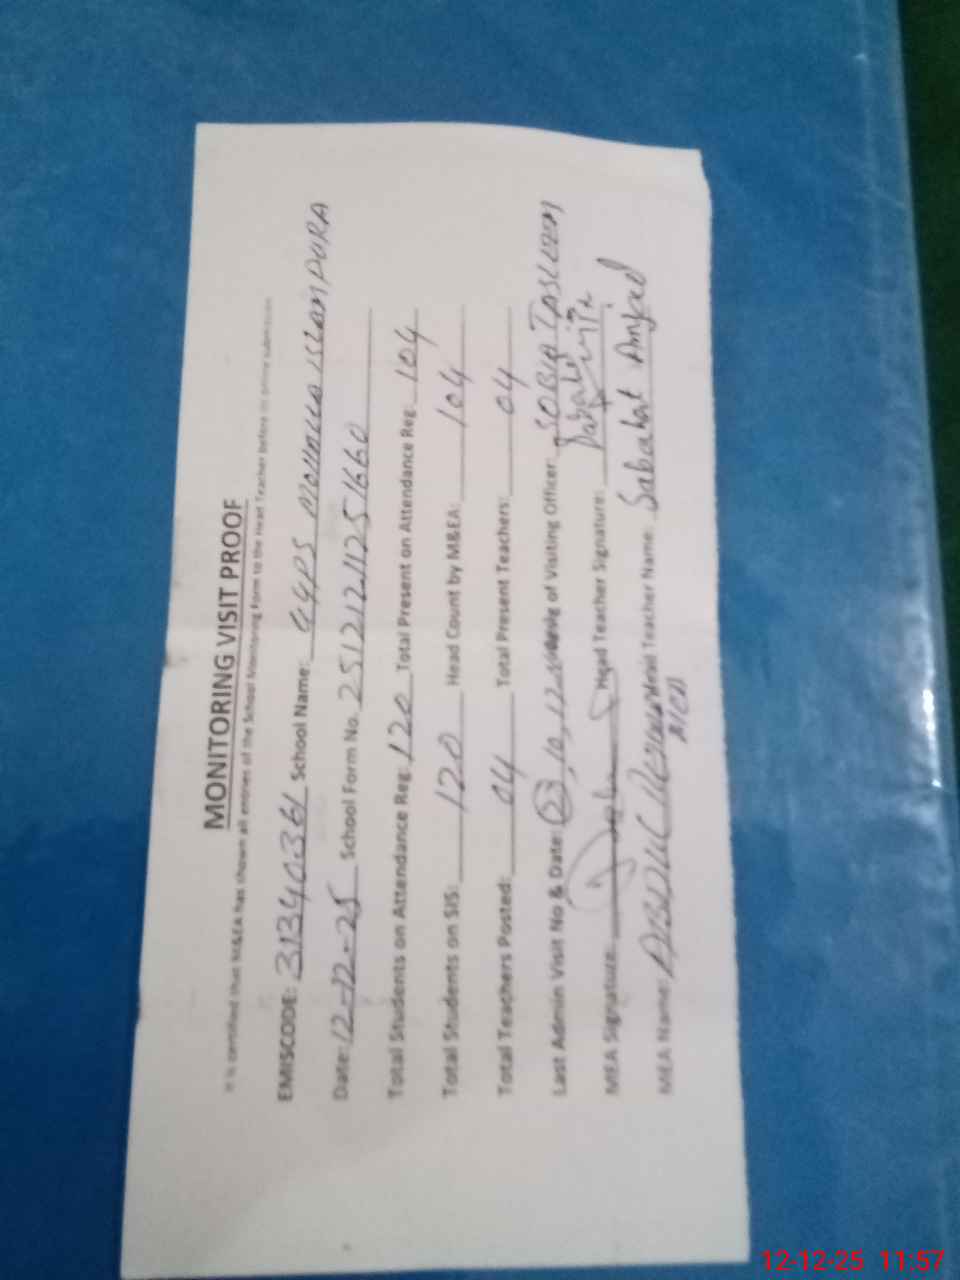 MONITORING VISIT PROOF
It is certified that M&EA has shown all entries of the School Monitoring Form to the Head Teacher before its online submission
EMISCODE: 31340361 School Name: GGPS ISLAMPURA
Date: 12-12-25 School Form No. 25121211251660
Total Students on Attendance Reg: 120 Total Present on Attendance Reg: 104
Total Students on SIS: 120 Head Count by M&EA: 104
Total Teachers Posted: 04 Total Present Teachers: 04
Last Admin Visit No & Date: 23, 10,12 of Visiting Officer: SOBIA TASLEEM
MEA Signature: Head Teacher Signature:
MEA Name: ABDUL Head Teacher Name: Sabahat Amjad
12-12-25 11:57